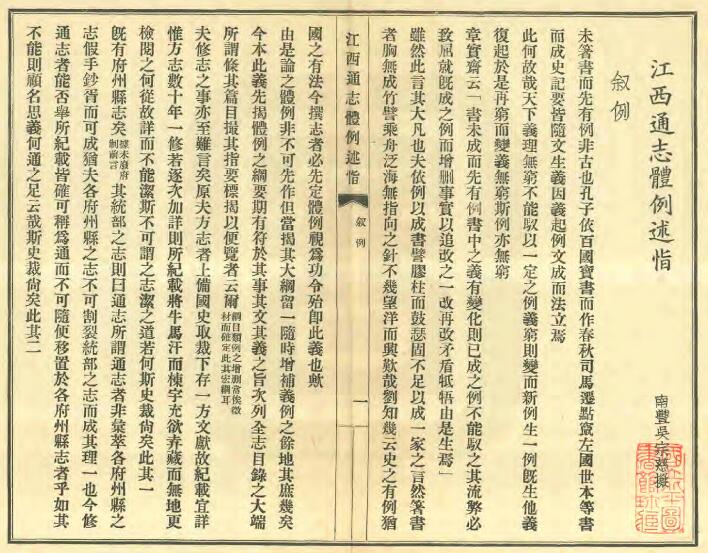 江西通志體例述恉
南豐吳宗慈撰
叙例
未箸書而先有例非古也孔子依百國寶書而作春秋司馬遷點竄左國世本等書
而成史記要皆隨文生義因義起例文成而法立焉
此何故哉天下義理無窮不能馭以一定之例義窮則變而新例生一例既生他義
復起於是再窮而變義無窮斯例亦無窮
章實齋云「書未成而先有例書中之義有變化則已成之例不能馭之其流弊必
致屈就既成之例而增删事實以追改之一改再改矛盾牴牾由是生焉」
雖然此言其大凡也夫依例以成書譬膠柱而鼓瑟固不足以成一家之言然箸書
者胸無成竹譬乘舟泛海無指向之針不幾望洋而興歎哉劉知幾云史之有例猶
江西通志體例述恉
叙例
一
國之有法今撰志者必先定體例視爲功令殆即此義也歟
由是論之體例非不可先作但當揭其大綱留一隨時增補義例之餘地其庶幾矣
今本此義先揭體例之綱要期有符於其事其文其義之旨次列全志目錄之大端
所謂條其篇目撮其指要標揭以便覽者云爾綱目類例之增删當俟徵材而確定此其宏綱耳
夫修志之事亦至難言矣原夫方志者上備國史取裁下存一方文獻故紀載宜詳
惟方志數十年一修若逐次加詳則所紀載將牛馬汗而棟宇充欲弆藏而無地更
檢閱之何從故詳而不能潔斯不可謂之志潔之道若何斯史裁尙矣此其一
既有府州縣志矣據未廢府制前言其統部之志則曰通志所謂通志者非彙萃各府州縣之
志假手鈔胥而可成猶夫各府州縣之志不可割裂統部之志而成其理一也今修
通志者能否舉所紀載皆確可稱爲通而不可隨便移置於各府州縣志者乎如其
不能則顧名思義何通之足云哉斯史裁尙矣此其二